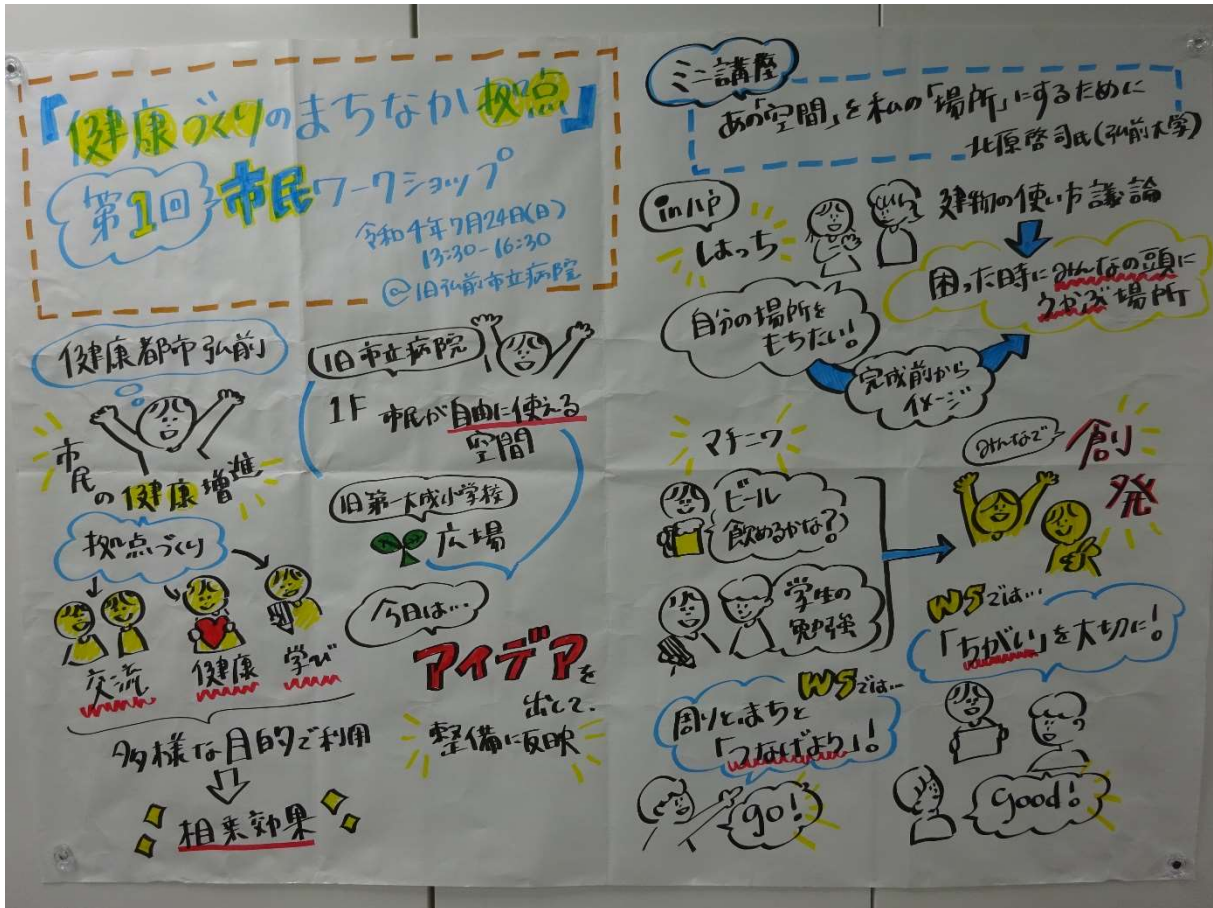 『健康づくりのまちなか拠点』
第1回 市民ワークショップ
令和4年7月24日(日)
13:30-16:30
@旧弘前市立病院
健康都市弘前
市民の健康増進
拠点づくり
交流 健康 学び
多様な目的で利用
相乗効果
旧市立病院
1F 市民が自由に使える
空間
旧第一大成小学校
広場
今日は…
アイデアを
出して、
整備に反映
ミニ講座
あの「空間」を私の「場所」にするために
北原啓司氏(弘前大学)
in 八戸
はっち
建物の使い方議論
困った時にみんなの頭に
うかぶ場所
自分の場所を
もちたい!
完成前から
イメージ
マチニワ
ビール
飲めるかな?
学生の
勉強
みんなで
創発
WSでは…
「ちがい」を大切に!
WSでは…
周りと、まちと
「つなげよう」!
go!
good!